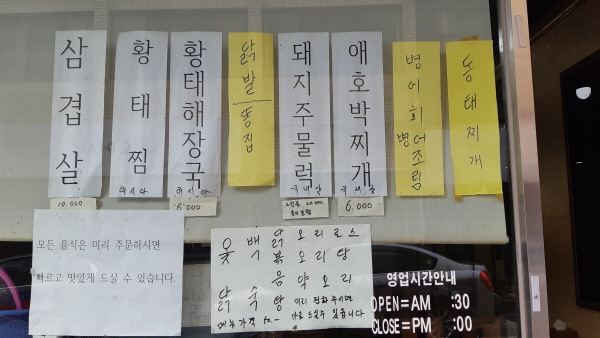 삼겹살
10.000
황태찜
러시아
황태해장국
러시아
6.000
닭발/똥집
돼지주물럭
국내산
애호박찌개
국내산
6.000
병어회
병어조림
동태찌개
모든 음식은 미리 주문하시면
빠르고 맛있게 드실 수 있습니다.
옻 백 닭 오리로스
볶 오리탕
음 약오리
닭 숙 탕 미리 전화 주시면
바로 드실수 있습니다
영업시간안내
OPEN=AM :30
CLOSE=PM :00